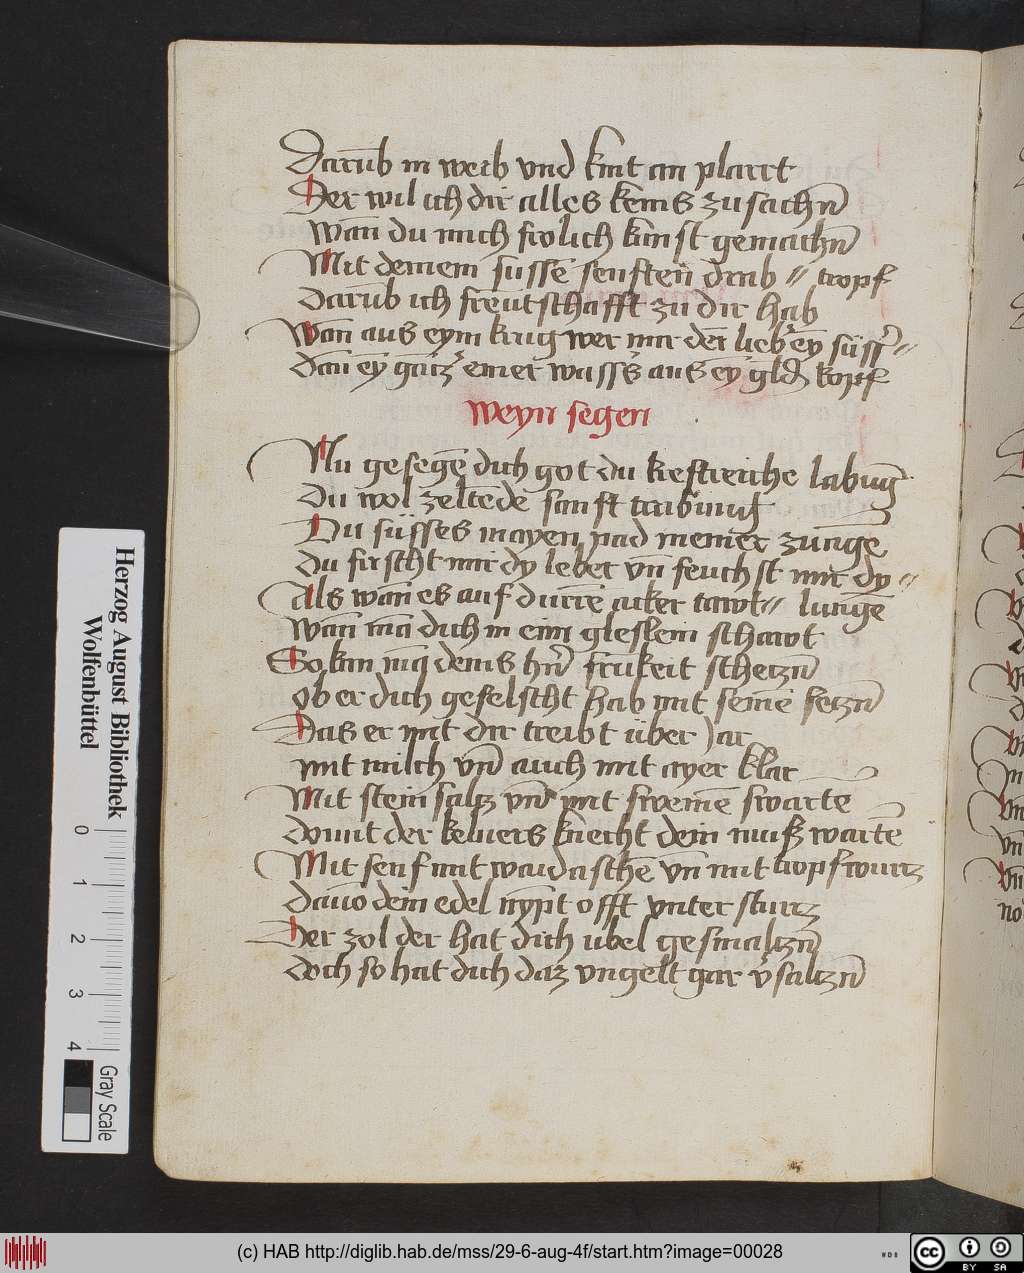 Darūb in weib vnd kint an plarrt
Der wil ich dir alles keins zusachn̄
Wān du mich frolich kanst gemachn̄
Mit deinem sussē senften drab // tropf
Darūb ich freuntschafft zu dir hab
Wān aus eym krug wer mir dein lieber ey
Dān ey gātz einer wassers aus ey gldn̄ kopf
Weyn segen
Nu gesegē dich got du kreftreiche labūg
Du wol zeltēde sanft trabūg
Du süsses mayen pad meiner zunge
du firscht mir dy leber vn̄ feuchst mir dy //
Als wān es auf durre acker tawt // lungē
Wān mā dich in eim gleslein schawt
So kan nẏm̄ deins hrn̄ frūkeit scherzn̄
ob er dich gefelscht hab mit seinē ketzn̄
Das er mit dir treibt über Jar
mit milch vnd auch mit ayer klar
Mit stein saltz vnd mit sweinē swarte
domit der kelners knecht dein muß wartē
Mit senf mit waidaschē vn̄ mit tropfwurtz
Dauō dein edel nympt offt vnter sturtz
Der zol der hat dich ubel gesmaltzn̄
doch so hat dich daz vngelt gar v̄saltzn̄
Herzog August Bibliothek
Wolfenbüttel
0 1 2 3 4
Gray Scale
(c) HAB http://diglib.hab.de/mss/29-6-aug-4f/start.htm?image=00028
WDB
cc BY SA